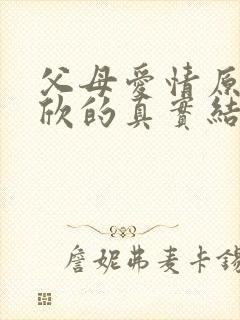 父母愛情原
欣的真實結
詹妮弗麦卡錫